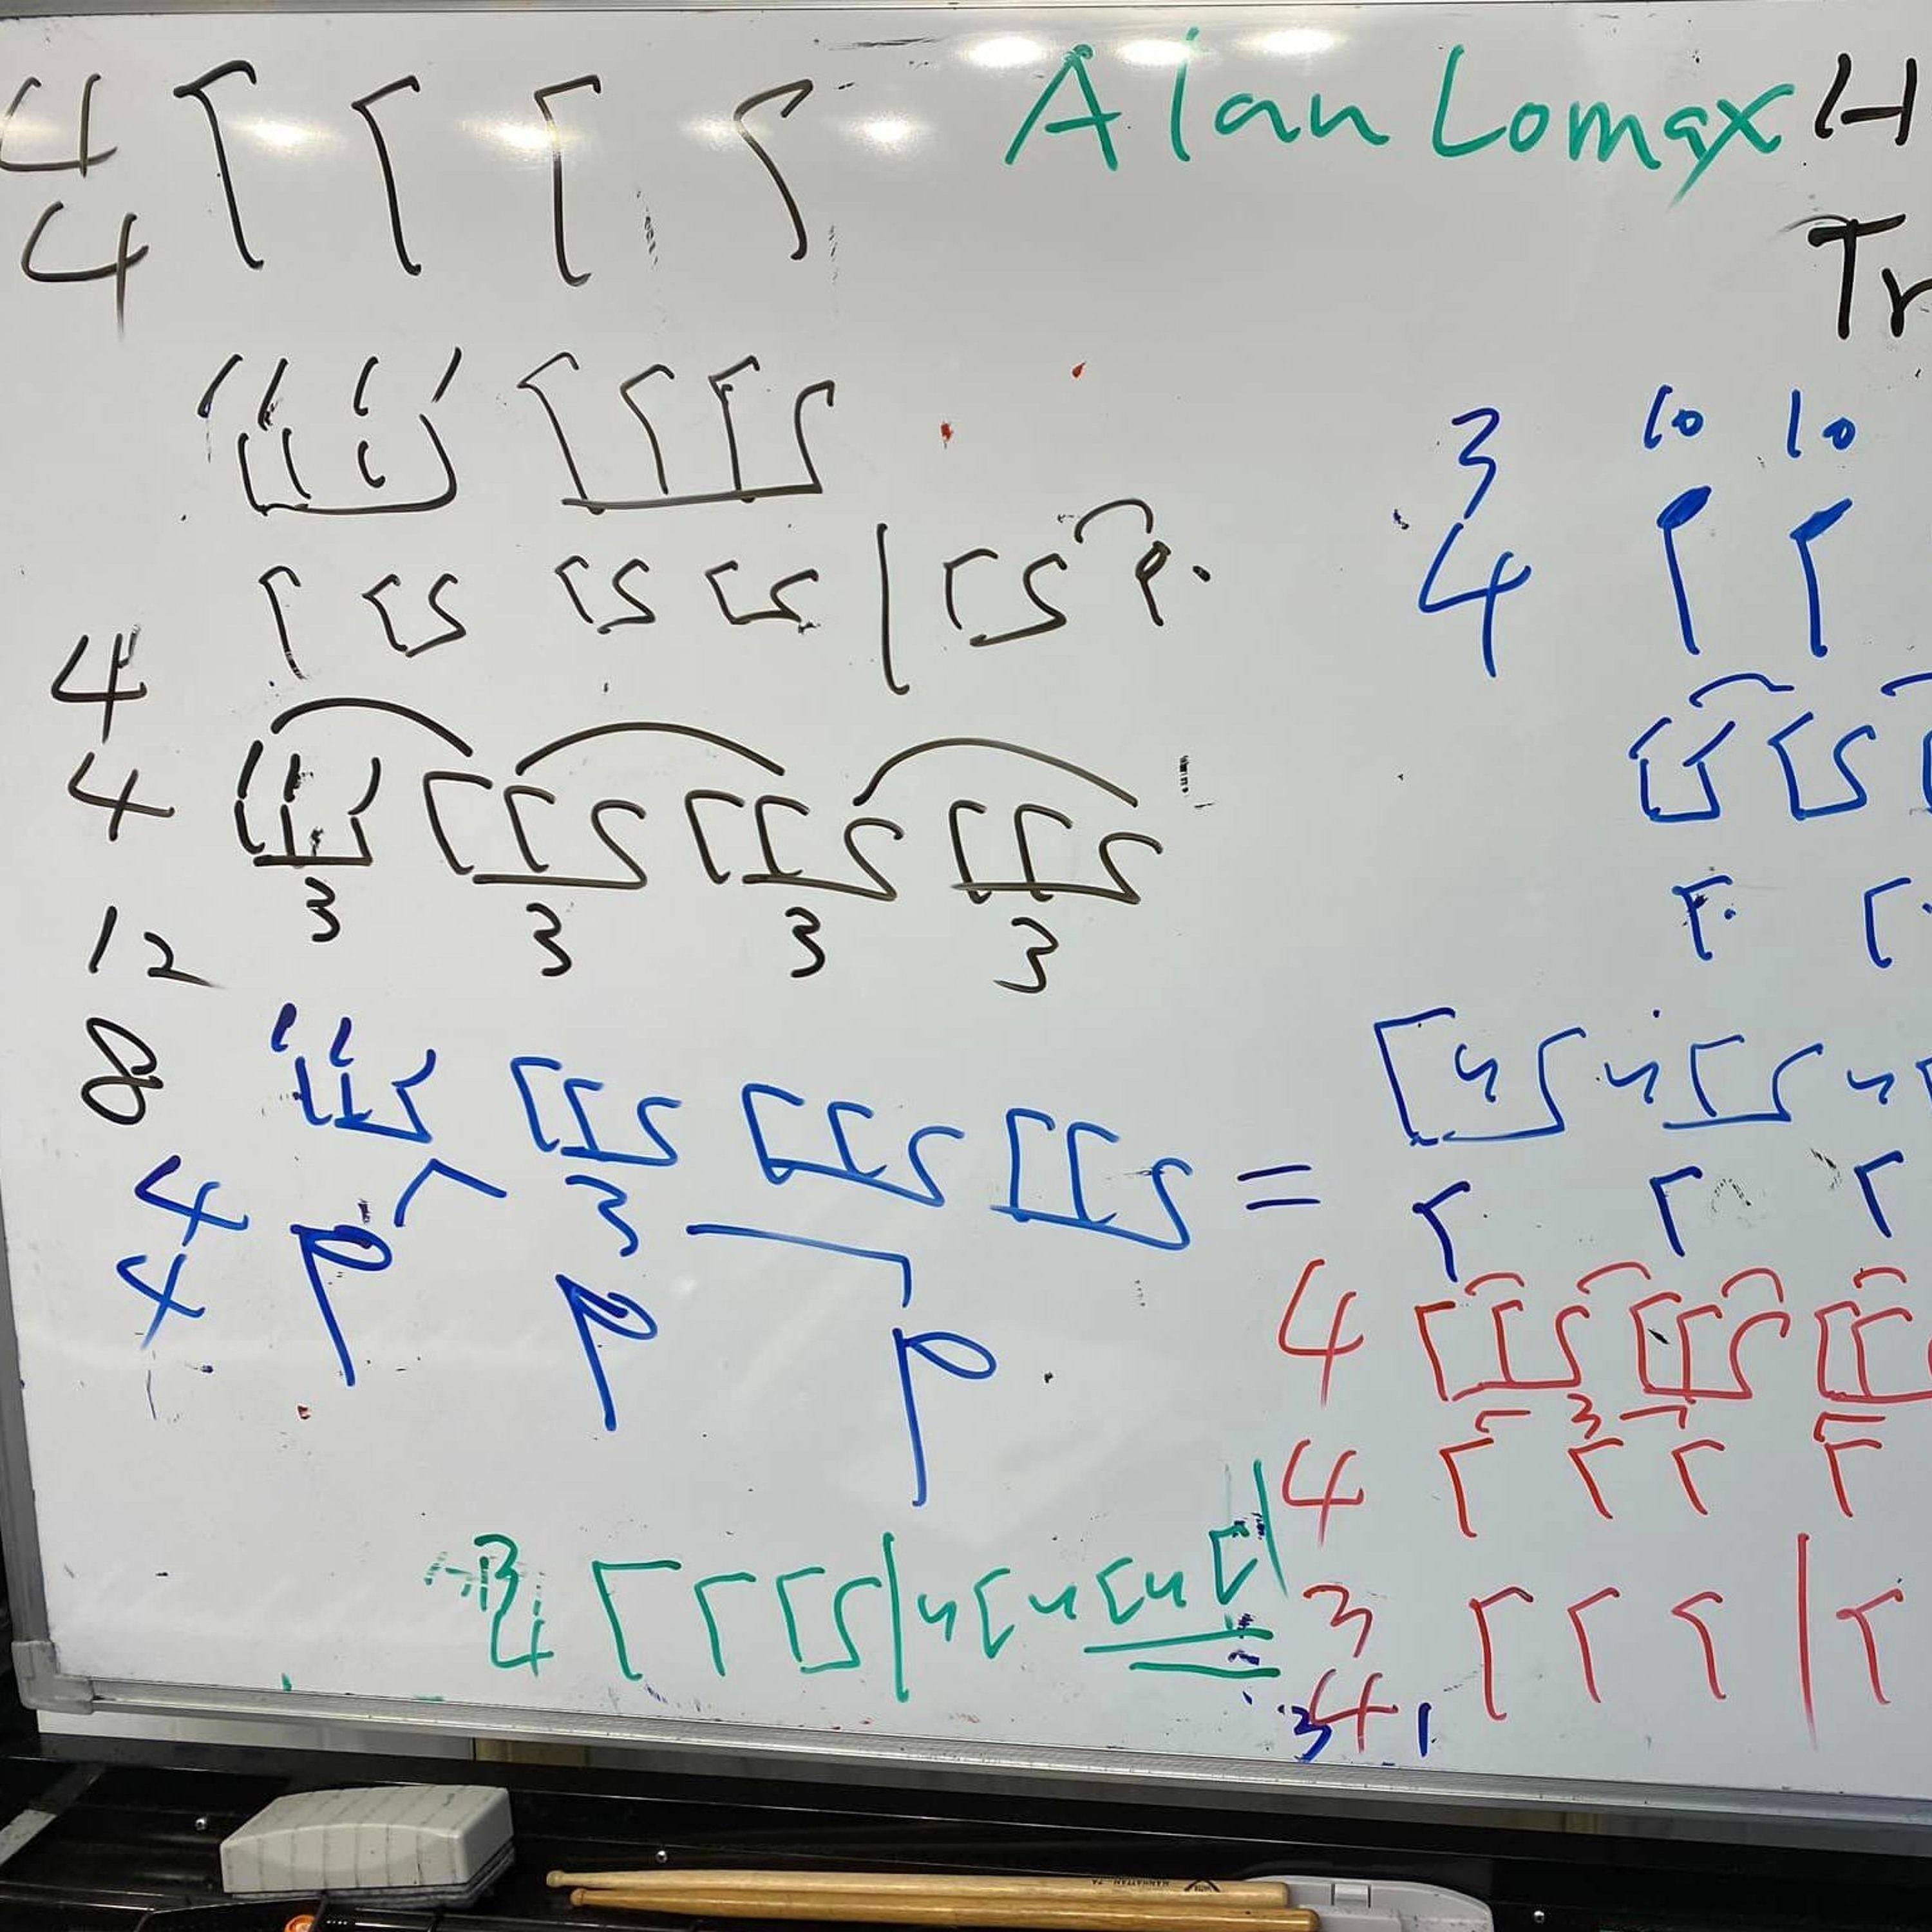 4 Alan Lomax H
4 Tr
3 10 10
4
4
4
3 3 3 3
12
8
4 3 =
4
4
3
4
3
4
3
4
3 1